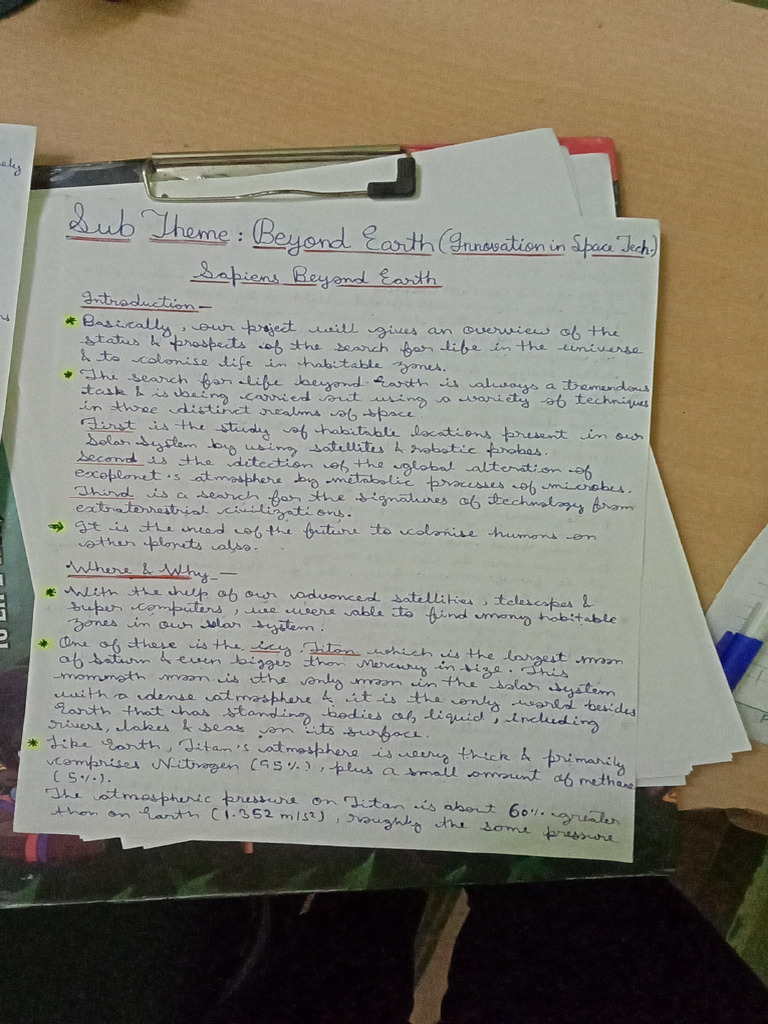 Sub Theme : Beyond Earth (Innovation in Space Tech.)
Sapiens Beyond Earth
Introduction -
* Basically, our project will gives an overview of the
status & prospects of the search for life in the universe
& to colonise life in habitable zones.
* The search for life beyond Earth is always a tremendous
task & is being carried out using a variety of techniques
in three distinct realms of space.
First is the study of habitable locations present in our
Solar System by using satellites & robotic probes.
Second is the detection of the global alteration of
exoplanet's atmosphere by metabolic processes of microbes.
Third is a search for the signatures of technology from
extraterrestrial civilizations.
→ It is the need of the future to colonise humans on
other planets also.
Where & Why -
* With the help of our advanced satellities, telescopes &
super computers, we were able to find many habitable
zones in our solar system.
* One of these is the icy Titan which is the largest moon
of Saturn & even bigger than Mercury in size. This
mammoth moon is the only moon in the solar system
with a dense atmosphere & it is the only world besides
Earth that has standing bodies of liquid, including
rivers, lakes & seas on its surface.
* Like Earth, Titan's atmosphere is very thick & primarily
comprises Nitrogen (95%), plus a small amount of methane
(5%).
The atmospheric pressure on Titan is about 60% greater
than on Earth (1.352 m/s²), roughly the same pressure
ely